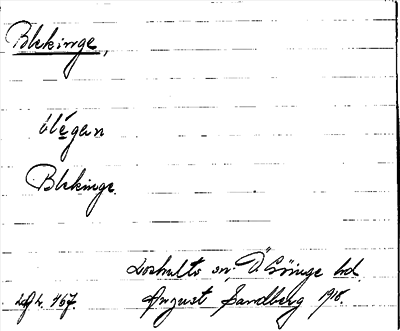 Blekinge,
Blekinge.
Loshults sn. Ö Göinge hd.
August Sandberg 1918.